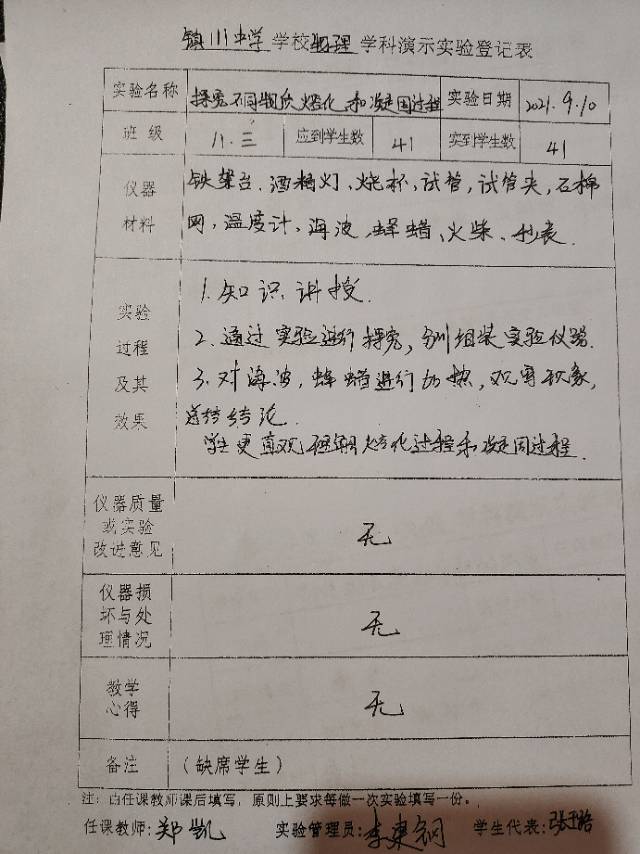 镇川中学学校物理学科演示实验登记表
实验名称 探究不同物质熔化和凝固过程 实验日期 2021.9.10
班级 八.三 应到学生数 41 实到学生数 41
仪器材料
铁架台.酒精灯、烧杯,试管,试管夹,石棉
网,温度计、海波,蜂蜡、火柴、秒表.
实验过程及其效果
1.知识讲授.
2.通过实验进行探究,分别组装实验仪器.
3.对海波,蜂蜡进行加热,观察现象,
总结结论.
学生更直观理解熔化过程和凝固过程.
仪器质量或实验改进意见 无
仪器损坏与处理情况 无
教学心得 无
备注 (缺席学生)
注:由任课教师课后填写,原则上要求每做一次实验填写一份。
任课教师:郑凯 实验管理员:李建钢 学生代表:张